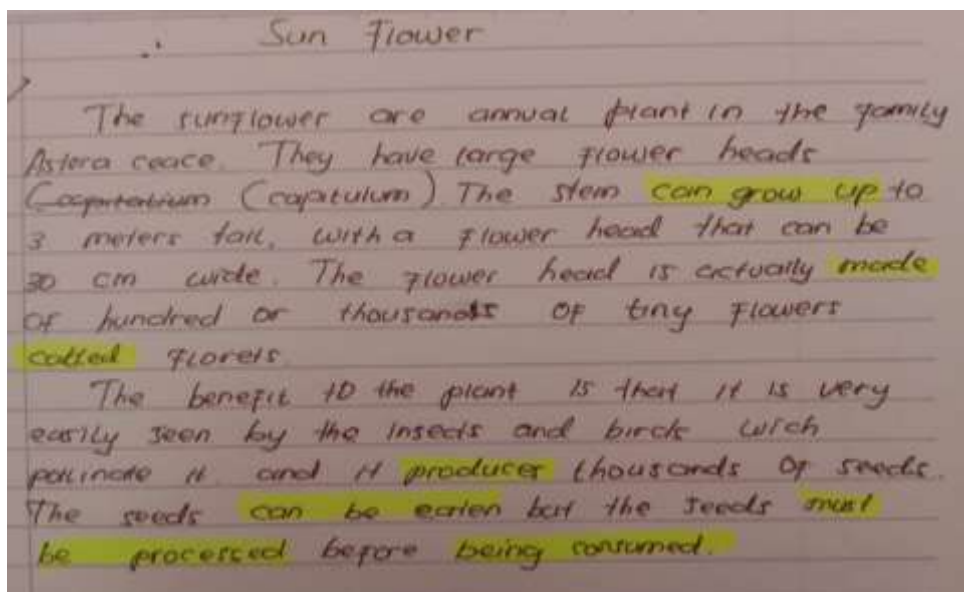 Sun Flower
The sunflower are annual plant in the family
Astera ceace. They have large flower heads
(capitulum) The stem can grow up to
3 meters tall, with a flower head that can be
30 cm wide. The flower head is actually made
of hundred or thousands of tiny flowers
called florets.
The benefit to the plant is that it is very
easily seen by the insects and birds wich
polinate it and it produces thousands of seeds.
The seeds can be eaten but the seeds must
be processed before being consumed.